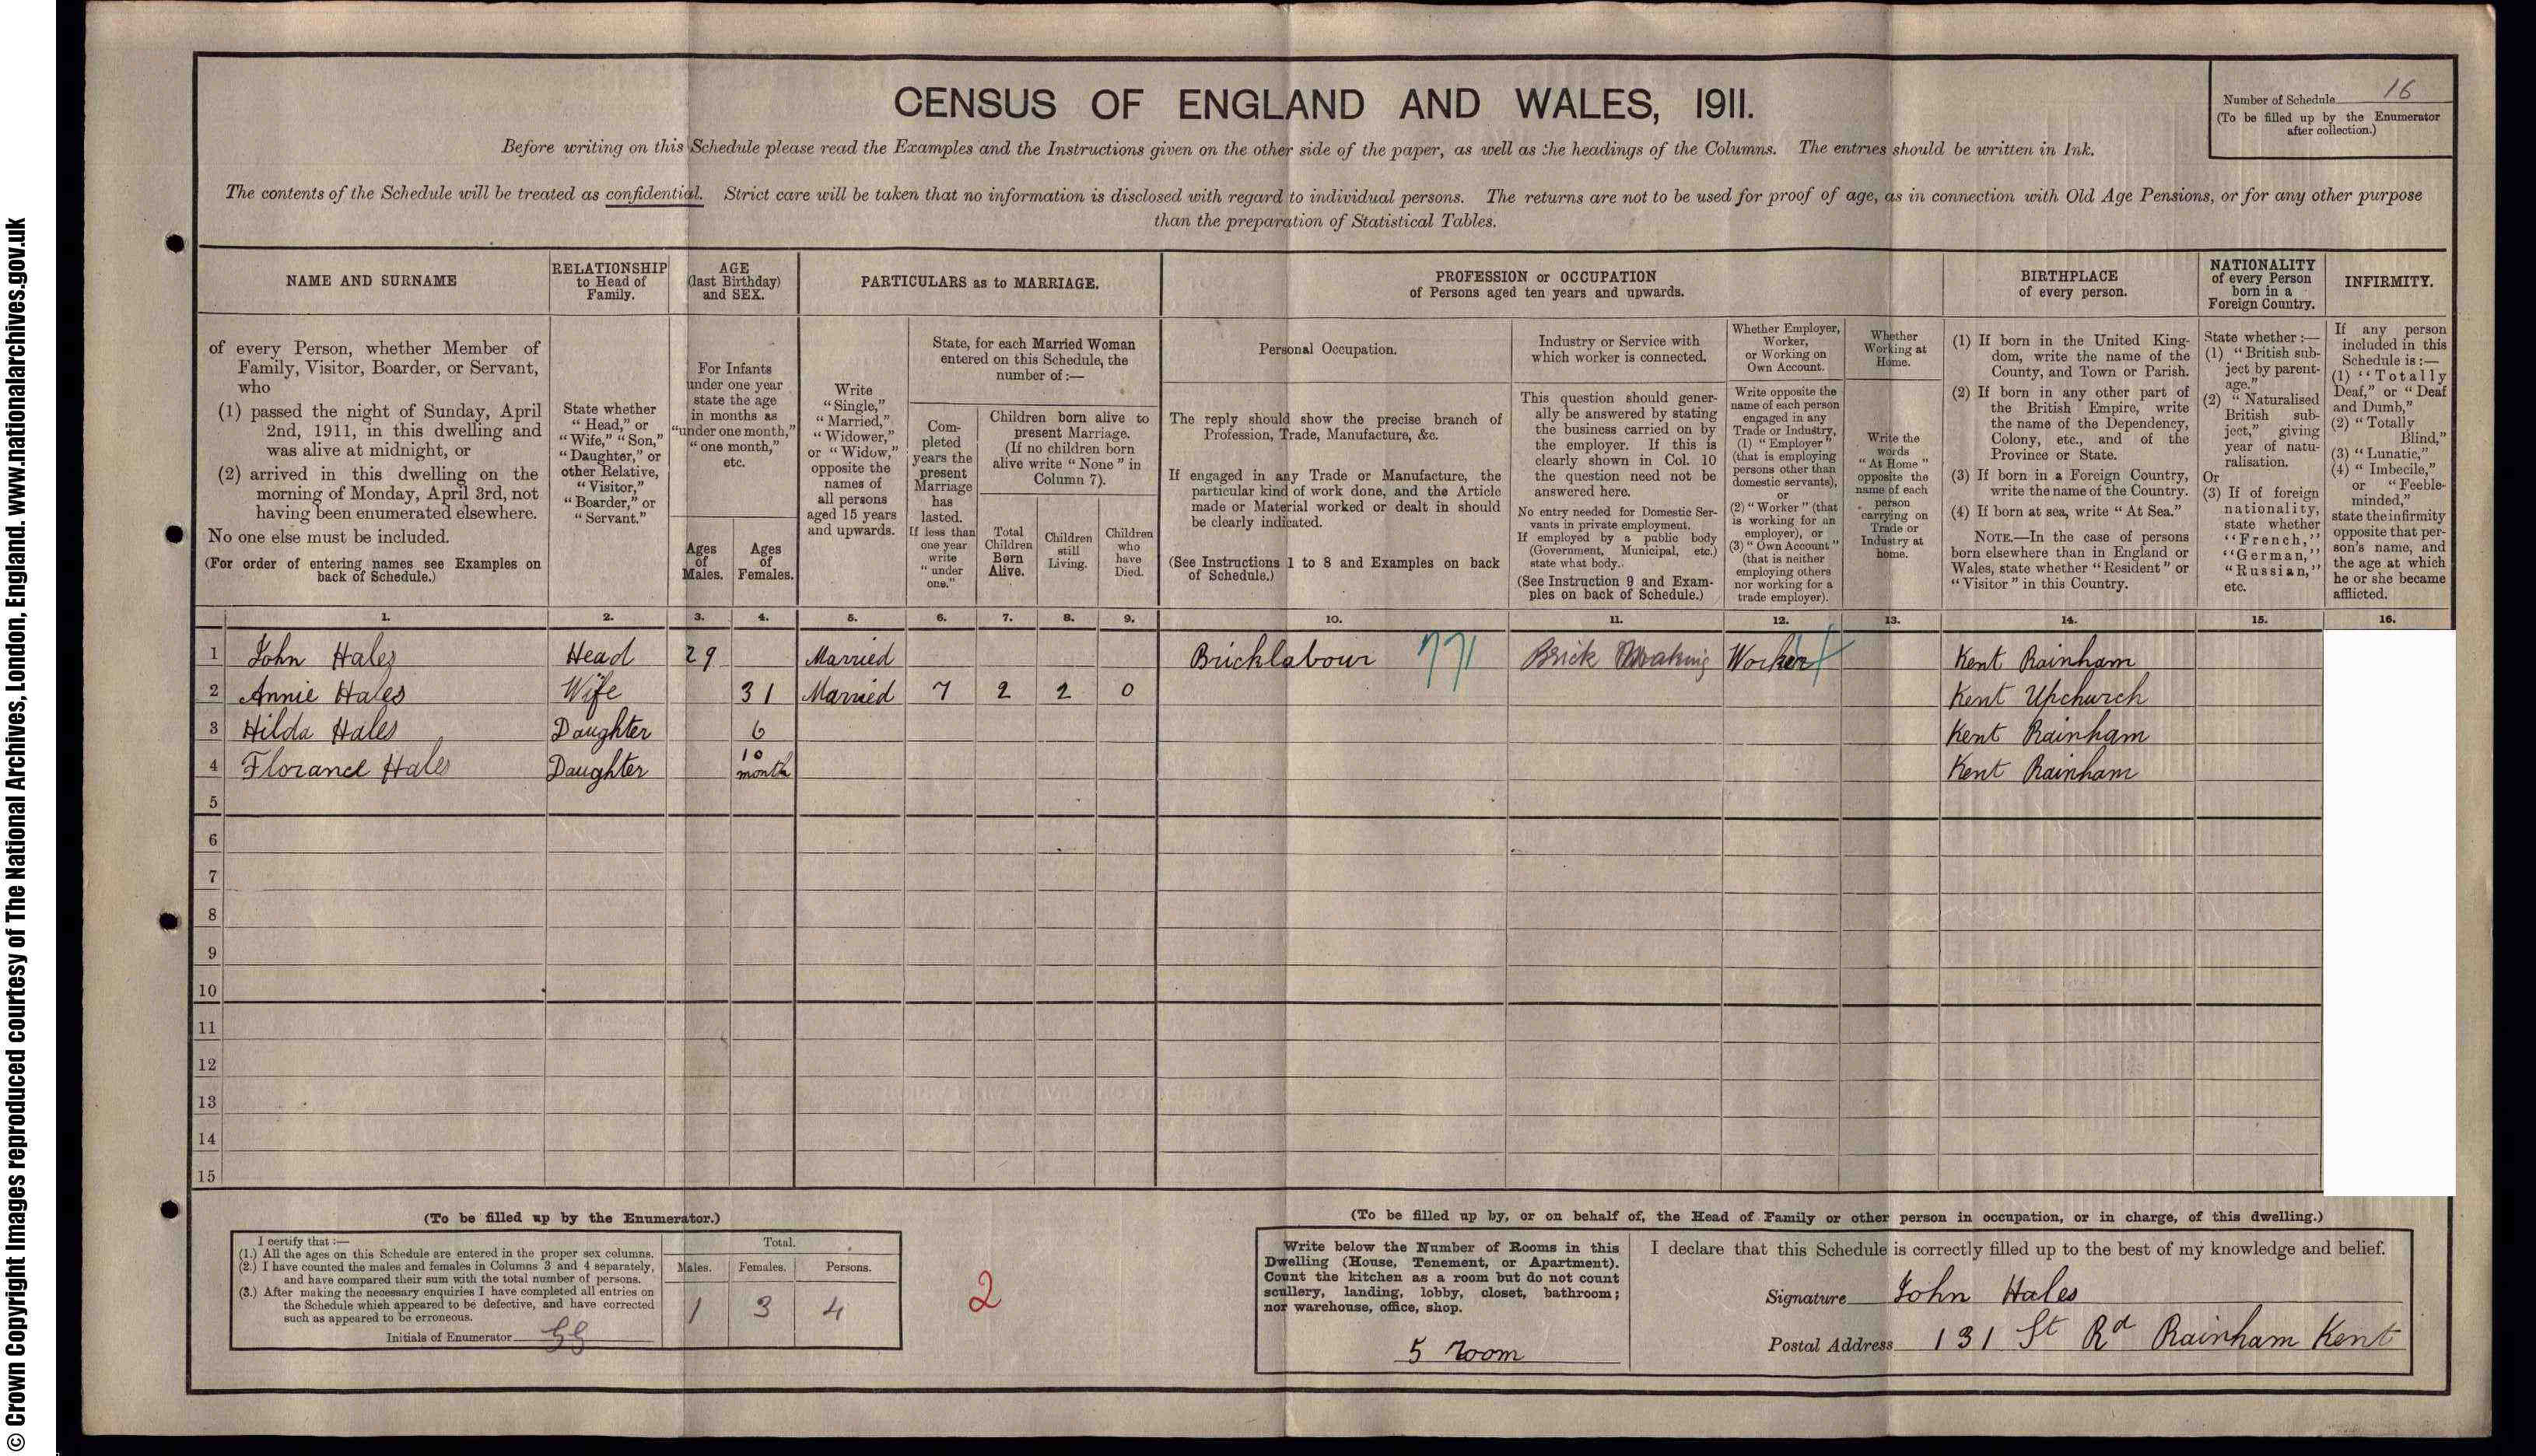 CENSUS OF ENGLAND AND WALES, 1911.
Number of Schedule 16
(To be filled up by the Enumerator
after collection.)
Before writing on this Schedule please read the Examples and the Instructions given on the other side of the paper, as well as the headings of the Columns. The entries should be written in Ink.
The contents of the Schedule will be treated as confidential. Strict care will be taken that no information is disclosed with regard to individual persons. The returns are not to be used for proof of age, as in connection with Old Age Pensions, or for any other purpose
than the preparation of Statistical Tables.
NAME AND SURNAME
of every Person, whether Member of
Family, Visitor, Boarder, or Servant,
who
(1) passed the night of Sunday, April
2nd, 1911, in this dwelling and
was alive at midnight, or
(2) arrived in this dwelling on the
morning of Monday, April 3rd, not
having been enumerated elsewhere.
No one else must be included.
(For order of entering names see Examples on
back of Schedule.)
RELATIONSHIP
to Head of
Family.
State whether
"Head," or
"Wife," "Son,"
"Daughter," or
other Relative,
"Visitor,"
"Boarder," or
"Servant."
AGE
(last Birthday)
and SEX.
For Infants
under one year
state the age
in months as
"under one month,"
"one month,"
etc.
Ages
of
Males.
Ages
of
Females.
PARTICULARS as to MARRIAGE.
Write
"Single,"
"Married,"
"Widower,"
or "Widow,"
opposite the
names of
all persons
aged 15 years
and upwards.
State, for each Married Woman
entered on this Schedule, the
number of :—
Com-
pleted
years the
present
Marriage
has
lasted.
If less than
one year
write
"under
one."
Children born alive to
present Marriage.
(If no children born
alive write "None" in
Column 7).
Total
Children
Born
Alive.
Children
still
Living.
Children
who
have
Died.
PROFESSION or OCCUPATION
of Persons aged ten years and upwards.
Personal Occupation.
The reply should show the precise branch of
Profession, Trade, Manufacture, &c.
If engaged in any Trade or Manufacture, the
particular kind of work done, and the Article
made or Material worked or dealt in should
be clearly indicated.
(See Instructions 1 to 8 and Examples on back
of Schedule.)
Industry or Service with
which worker is connected.
This question should gener-
ally be answered by stating
the business carried on by
the employer. If this is
clearly shown in Col. 10
the question need not be
answered here.
No entry needed for Domestic Ser-
vants in private employment.
If employed by a public body
(Government, Municipal, etc.)
state what body.
(See Instruction 9 and Exam-
ples on back of Schedule.)
Whether Employer,
Worker,
or Working on
Own Account.
Write opposite the
name of each person
engaged in any
Trade or Industry,
(1) "Employer"
(that is employing
persons other than
domestic servants),
or
(2) "Worker" (that
is working for an
employer), or
(3) "Own Account"
(that is neither
employing others
nor working for a
trade employer).
Whether
Working at
Home.
Write the
words
"At Home"
opposite the
name of each
person
carrying on
Trade or
Industry at
home.
BIRTHPLACE
of every person.
(1) If born in the United King-
dom, write the name of the
County, and Town or Parish.
(2) If born in any other part of
the British Empire, write
the name of the Dependency,
Colony, etc., and of the
Province or State.
(3) If born in a Foreign Country,
write the name of the Country.
(4) If born at sea, write "At Sea."
NOTE.—In the case of persons
born elsewhere than in England or
Wales, state whether "Resident" or
"Visitor" in this Country.
NATIONALITY
of every Person
born in a
Foreign Country.
State whether :—
(1) "British sub-
ject by parent-
age."
(2) "Naturalised
British sub-
ject," giving
year of natu-
ralisation.
Or
(3) If of foreign
nationality,
state whether
"French,"
"German,"
"Russian,"
etc.
INFIRMITY.
If any person
included in this
Schedule is :—
(1) "Totally
Deaf," or "Deaf
and Dumb,"
(2) "Totally
Blind,"
(3) "Lunatic,"
(4) "Imbecile,"
or "Feeble-
minded,"
state the infirmity
opposite that per-
son's name, and
the age at which
he or she became
afflicted.
1. 2. 3. 4. 5. 6. 7. 8. 9. 10. 11. 12. 13. 14. 15. 16.
1 John Hales Head 29 Married Bricklabour 771 Brick Making Worker Kent Rainham
2 Annie Hales Wife 31 Married 7 2 2 0 Kent Upchurch
3 Hilda Hales Daughter 6 Kent Rainham
4 Florance Hales Daughter 10 month Kent Rainham
5
6
7
8
9
10
11
12
13
14
15
(To be filled up by the Enumerator.)
I certify that :—
(1.) All the ages on this Schedule are entered in the proper sex columns.
(2.) I have counted the males and females in Columns 3 and 4 separately,
and have compared their sum with the total number of persons.
(3.) After making the necessary enquiries I have completed all entries on
the Schedule which appeared to be defective, and have corrected
such as appeared to be erroneous.
Initials of Enumerator
Total.
Males. Females. Persons.
1 3 4
2
(To be filled up by, or on behalf of, the Head of Family or other person in occupation, or in charge, of this dwelling.)
Write below the Number of Rooms in this
Dwelling (House, Tenement, or Apartment).
Count the kitchen as a room but do not count
scullery, landing, lobby, closet, bathroom;
nor warehouse, office, shop.
5 room
I declare that this Schedule is correctly filled up to the best of my knowledge and belief.
Signature John Hales
Postal Address 131 St Rd Rainham Kent
© Crown Copyright Images reproduced courtesy of The National Archives, London, England. www.nationalarchives.gov.uk